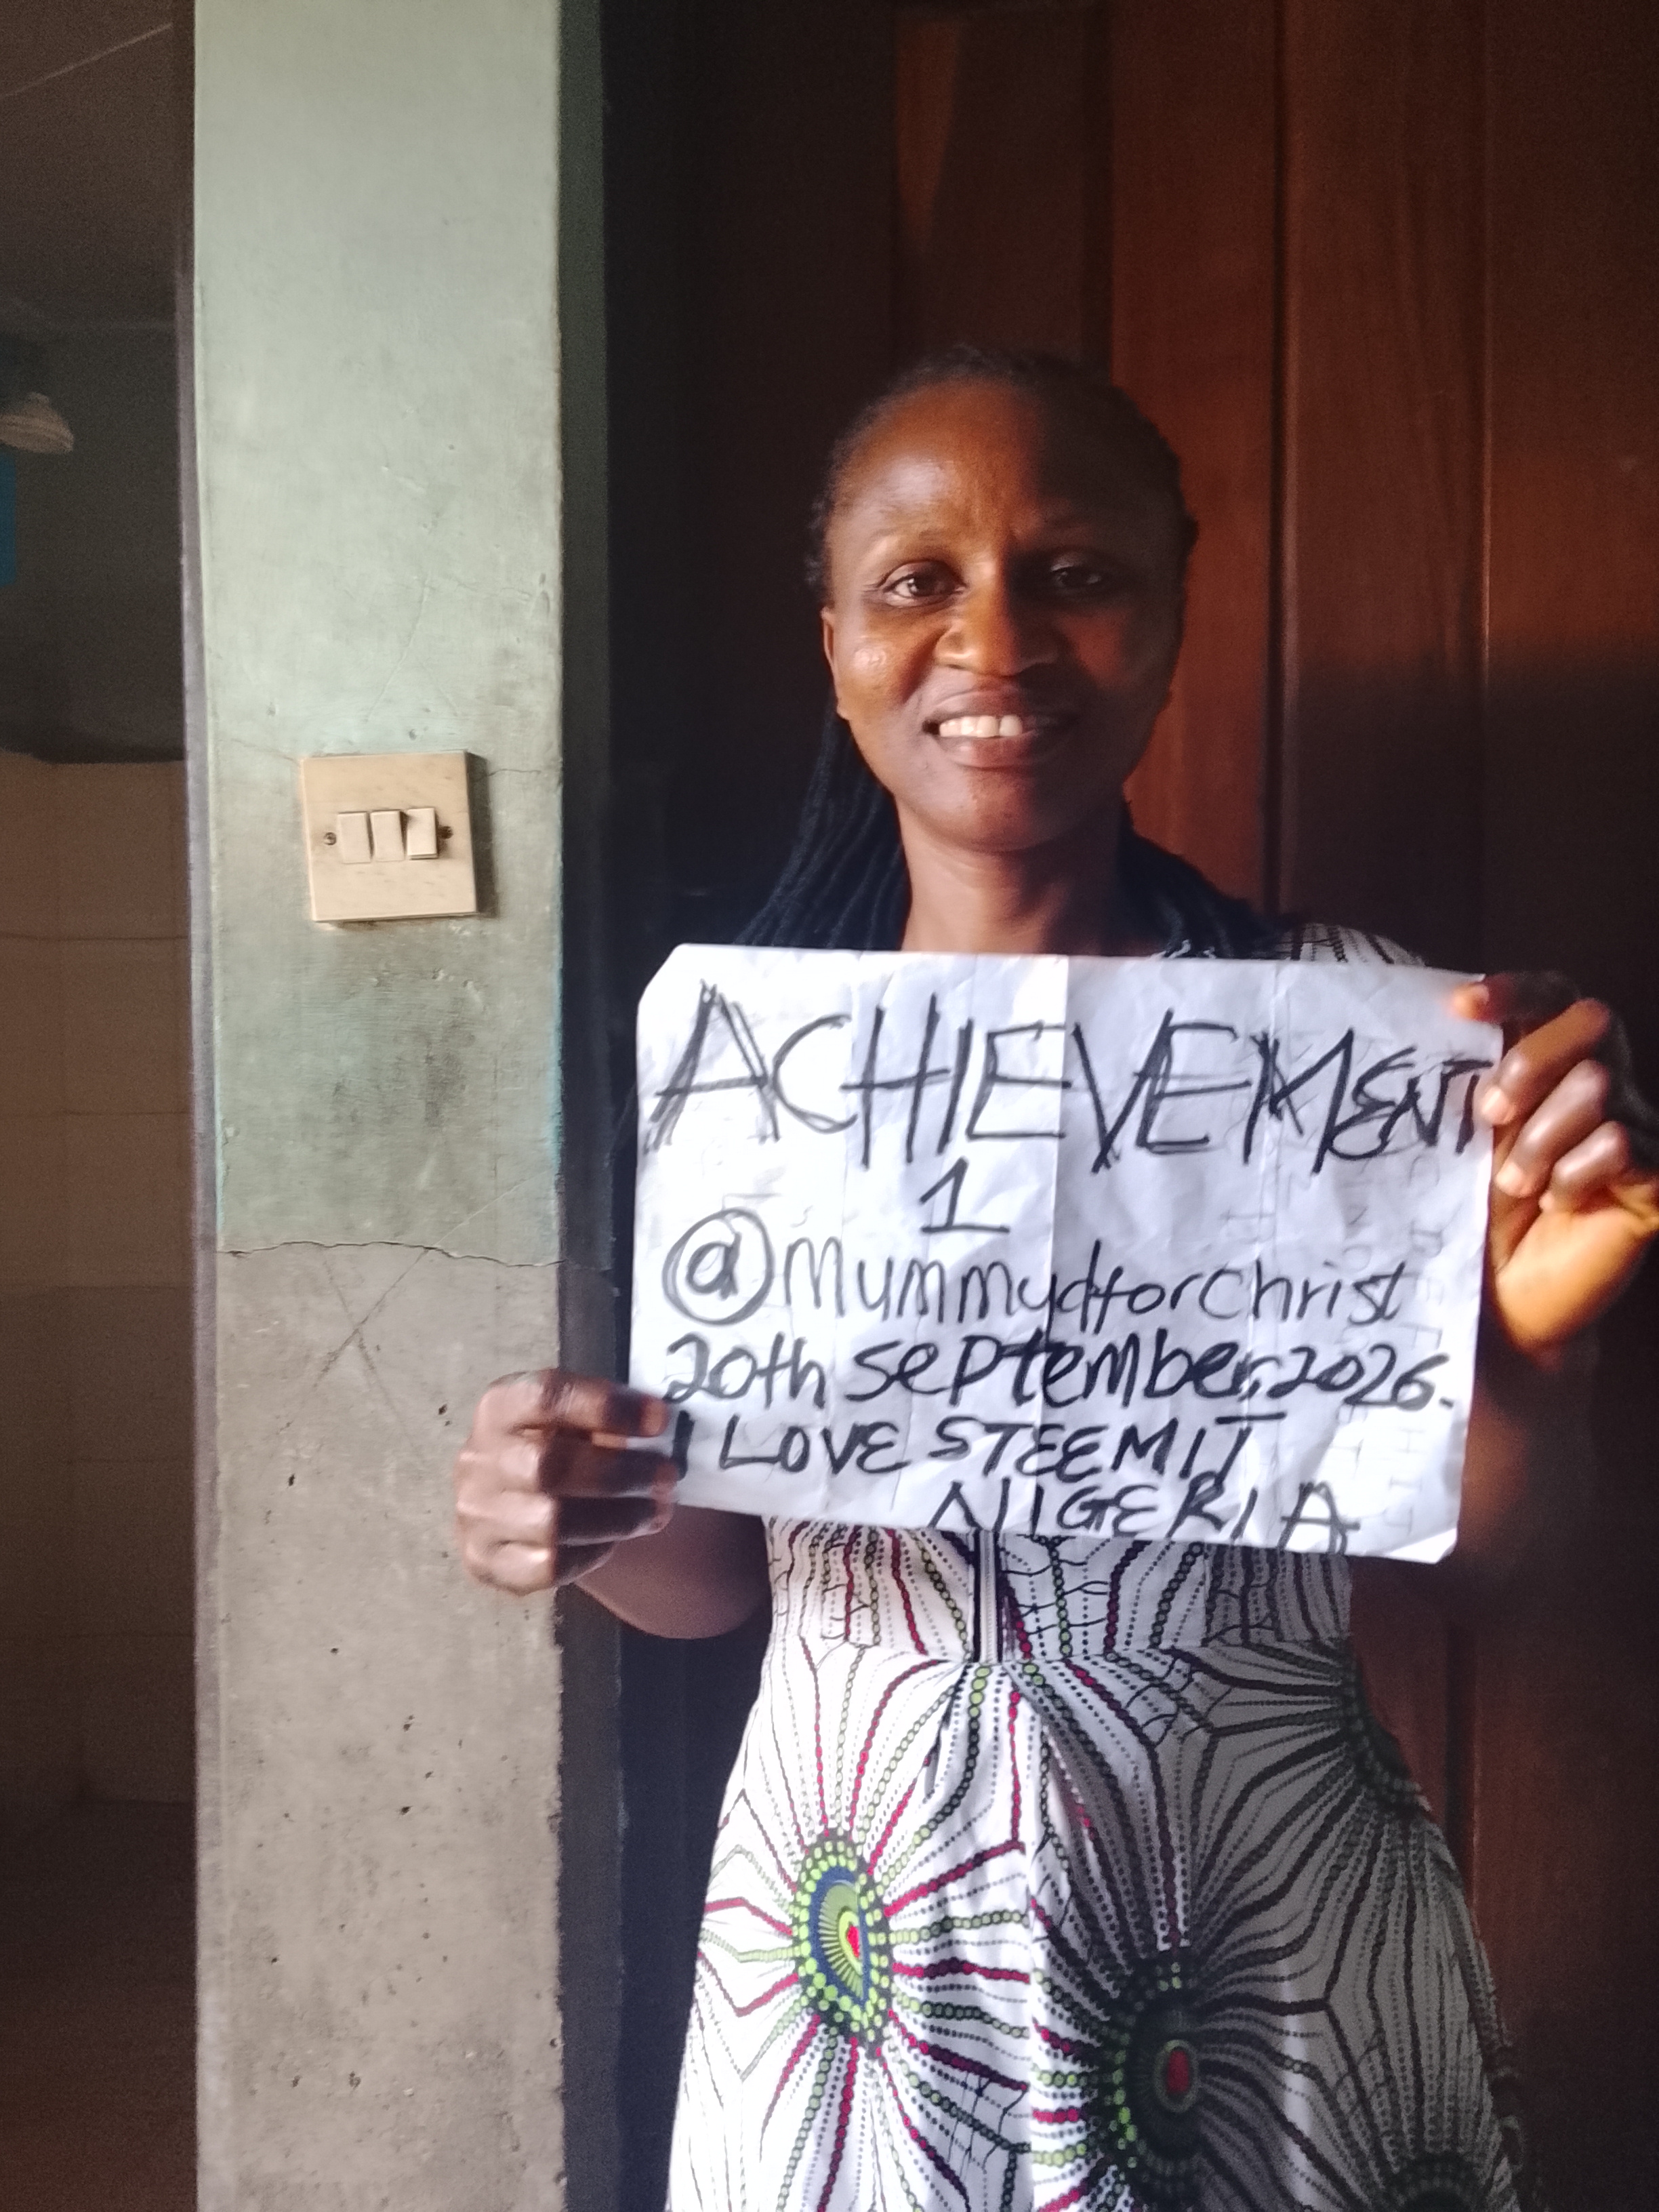 ACHIEVEMENT
1
@mummydforchrist
20th september, 2026.
I LOVE STEEMIT
NIGERIA